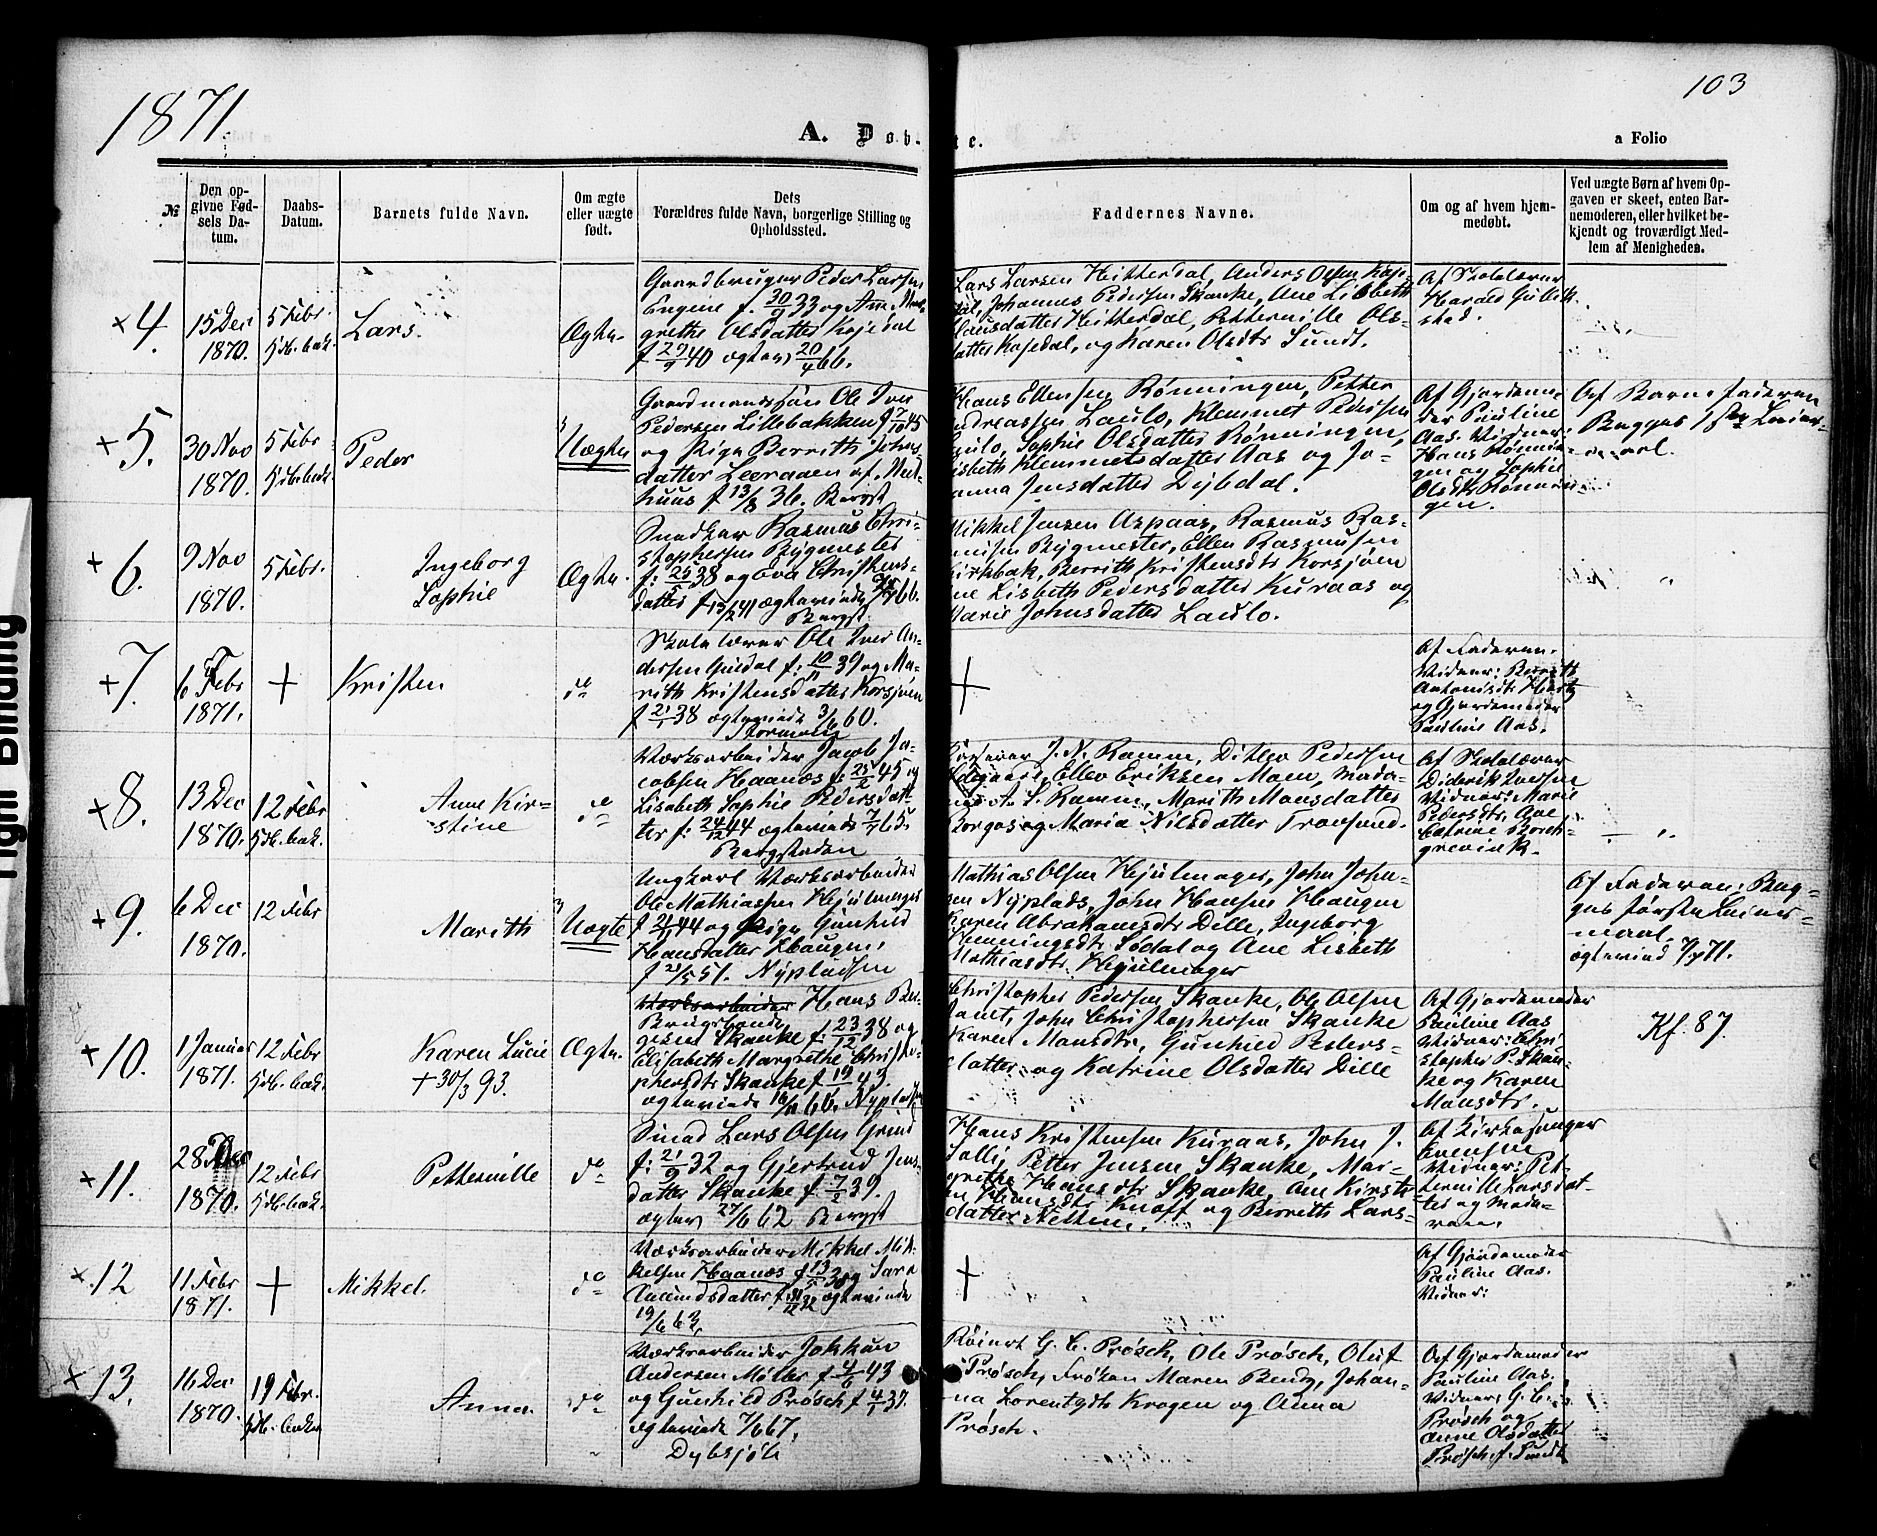 1871
103
A. Døb- te.
a Folio
№
Den opgivne Fødsels Datum.
Daabs-Datum.
Barnets fulde Navn.
Om ægte eller uægte født.
Dets Forældres fulde Navn, borgerlige Stilling og Opholdssted.
Faddernes Navne.
Om og af hvem hjemmedøbt.
Ved uægte Børn af hvem Opgaven er skeet, enten Barnemoderen, eller hvilket bekjendt og troværdigt Medlem af Menigheden.
+4.
15 Dec
1870.
5 Febr.
Lars.
Ægte
Gaardbruger Peder Larsen
Engene f. 30/9 33 og Ane Mar-
grethe Olsdatter Kojedal
f 29/9 40 ægtev. 20/4 66.
Lars Larsen Hitterdal, Anders Olsen Koje-
dal, Johannes Pedersen Skanke, Ane Lisbeth
Clausdatter Hitterdal, Petternille Ols-
datter Kojedal, og Karen Olsdtr Sundt.
Af Skolelærer
Harald Gullik-
stad.
+5.
30 Nov
1870.
5 Febr
Peder
Uægte
Gaardmandssøn Ole Iver
Pedersen Lillebakken f 7/10 45
og Pige Berrith Johns-
datter Leeraaen af Mel-
huus f 13/8 36. Bergst
Hans Ellensen Rønningen, Petter
Andreassen Laulo, Klemmet Pedersen
Laulo, Sophie Olsdatter Rønningen,
Lisbeth Klemmetsdatter Aas og Jo-
hanna Jensdatter Dybdal.
Af Gjordemo-
der Pauline
Aas. Vidner:
Hans Rønnin-
gen og Sophie
Olsdtr Rønnin-
gen.
Af Barnefaderen
Begges 1ste Leier-
maal.
+6.
9 Nov
1870.
5 Febr.
Ingeborg
Sophie
Ægte.
Snedker Rasmus Chri-
stophersen Bygmester
f: 25/5 38 og Eva Christens-
datter f 13/2 41 ægteviede 66.
Bergst.
Mikkel Jensen Aspaas, Rasmus Ras-
musen Bygmester, Ellen Rasmusen
Kirkbak, Berrith Kristensdtr Korsjøen
Ane Lisbeth Pedersdatter Kuraas og
Marie Johnsdatter Laulo.
"
+7.
6 Febr
1871.
+
Kristen
do
Skolelærer Ole Iver An-
dersen Guldal f: 10/11 39 og Ma-
rith Kristensdatter Korsjøen
f 21/1 38 ægteviede 3/6 60.
Stormoese
+
Af Faderen.
Vidner: Berrith
Antonisdtr Hertz
og Gjordemoder
Pauline Aas.
+8.
13 Dec
1870.
12 Febr
Anne Kir-
stine
do
Værksarbeider Jacob Ja-
cobsen Haanæs f: 25/2 45 og
Lisabeth Sophie Pedersdat-
ter f: 24/12 44 ægteviede 65.
Bergstaden
J. N. Ramm, Ditlev Pedersen
Ødegaard, Ellev Eriksen Moen, Mada-
me A. S. Ramm, Marith Monsdatter
Borgos og Maria Nilsdatter Tronsund.
Af Skolelærer
Diderik Iversen
Vidner: Marie
Pedersdtr, Ane
Catrine Borch-
grevink.
"
+9.
6 Dec
1870.
12 Febr
Marith
Uægte
Ungkarl Værksarbeider
Ole Mathiassen Hjulmager
f 44 og Pige Gunhild
Hansdatter Haugen,
f 21/5 51. Nypladsen
Mathias Olsen Hjulmager, John John-
sen Nyplads, John Hansen Haugen
Karen Abrahamsdtr Dille, Ingeborg
Henningsdtr Sødal og Ane Lisbeth
Mathiasdtr. Hjulmager
Af Faderen: Beg-
ges første Leier-
maal
ægteviede 71.
+10.
1 Januar
1871.
12 Febr
Karen Lucie
+ 30/3 93.
Ægte.
Værksarbeider Hans Bir-
Brugsbonde
gesen Skanke f: 23/12 38 og
Elisabeth Margrethe Christo-
phersdtr Skanke f 19/ 43.
ægteviede 16/11 66. Nypladsen
Christopher Pedersen Skanke, Ole Olsen
John Christophersen Skanke
Karen Monsdtr, Gunhild Peders-
datter og Katrine Olsdatter Dille
Af Gjordemoder
Pauline Aas
Vidner: Chri-
stopher P. Skan-
ke og Karen
Monsdtr.
Kf. 87.
+11.
28 Dec
1870.
12 Febr
Petternille
do
Smed Lars Olsen Grind
f: 21/9 32 og Gjertrud Jens-
datter Skanke f. 7/2 39.
ægtev 27/6 62 Bergst
Hans Kristensen Kuraas, John J.
Solli, Petter Jensen Skanke, Mar-
grethe Hansdtr Skanke, Ane Kirsti-
ne Hansdtr Knoff og Berrith Lars-
datter
Af Kirkesanger
Evensen
Vidner: Pet-
ternille Larsdat-
ter og Mode-
ren.
+12
11 Febr
1871.
+
Mikkel.
do
Værksarbeider Mikkel Mik-
kelsen Haanæs f 13/5 38 og Sara
Amundsdatter f 31/12 32 ægteviede
19/6 63.
+
Af Gjordemoder
Pauline Aas.
Vidner:
+13.
16 Dec
1870.
19 Febr.
Anna.
do
Værksarbeider Jokkum
Andersen Møller f 4/6 43
og Gunhild Prøsch f 4/1 37
ægteviede 7/6 67.
Dybsjøli
Reinert G. C. Prøsch, Ole Prøsch, Oluf
Prøsch, Frøken Maren Bendz, Johan-
na Lorentzdtr Krogen og Anna
Prøsch.
Af Gjordemoder
Pauline Aas.
Vidner, G. C.
Prøsch og
Anne Olsdatter
Prøsch f. Sundt
Tight Binding